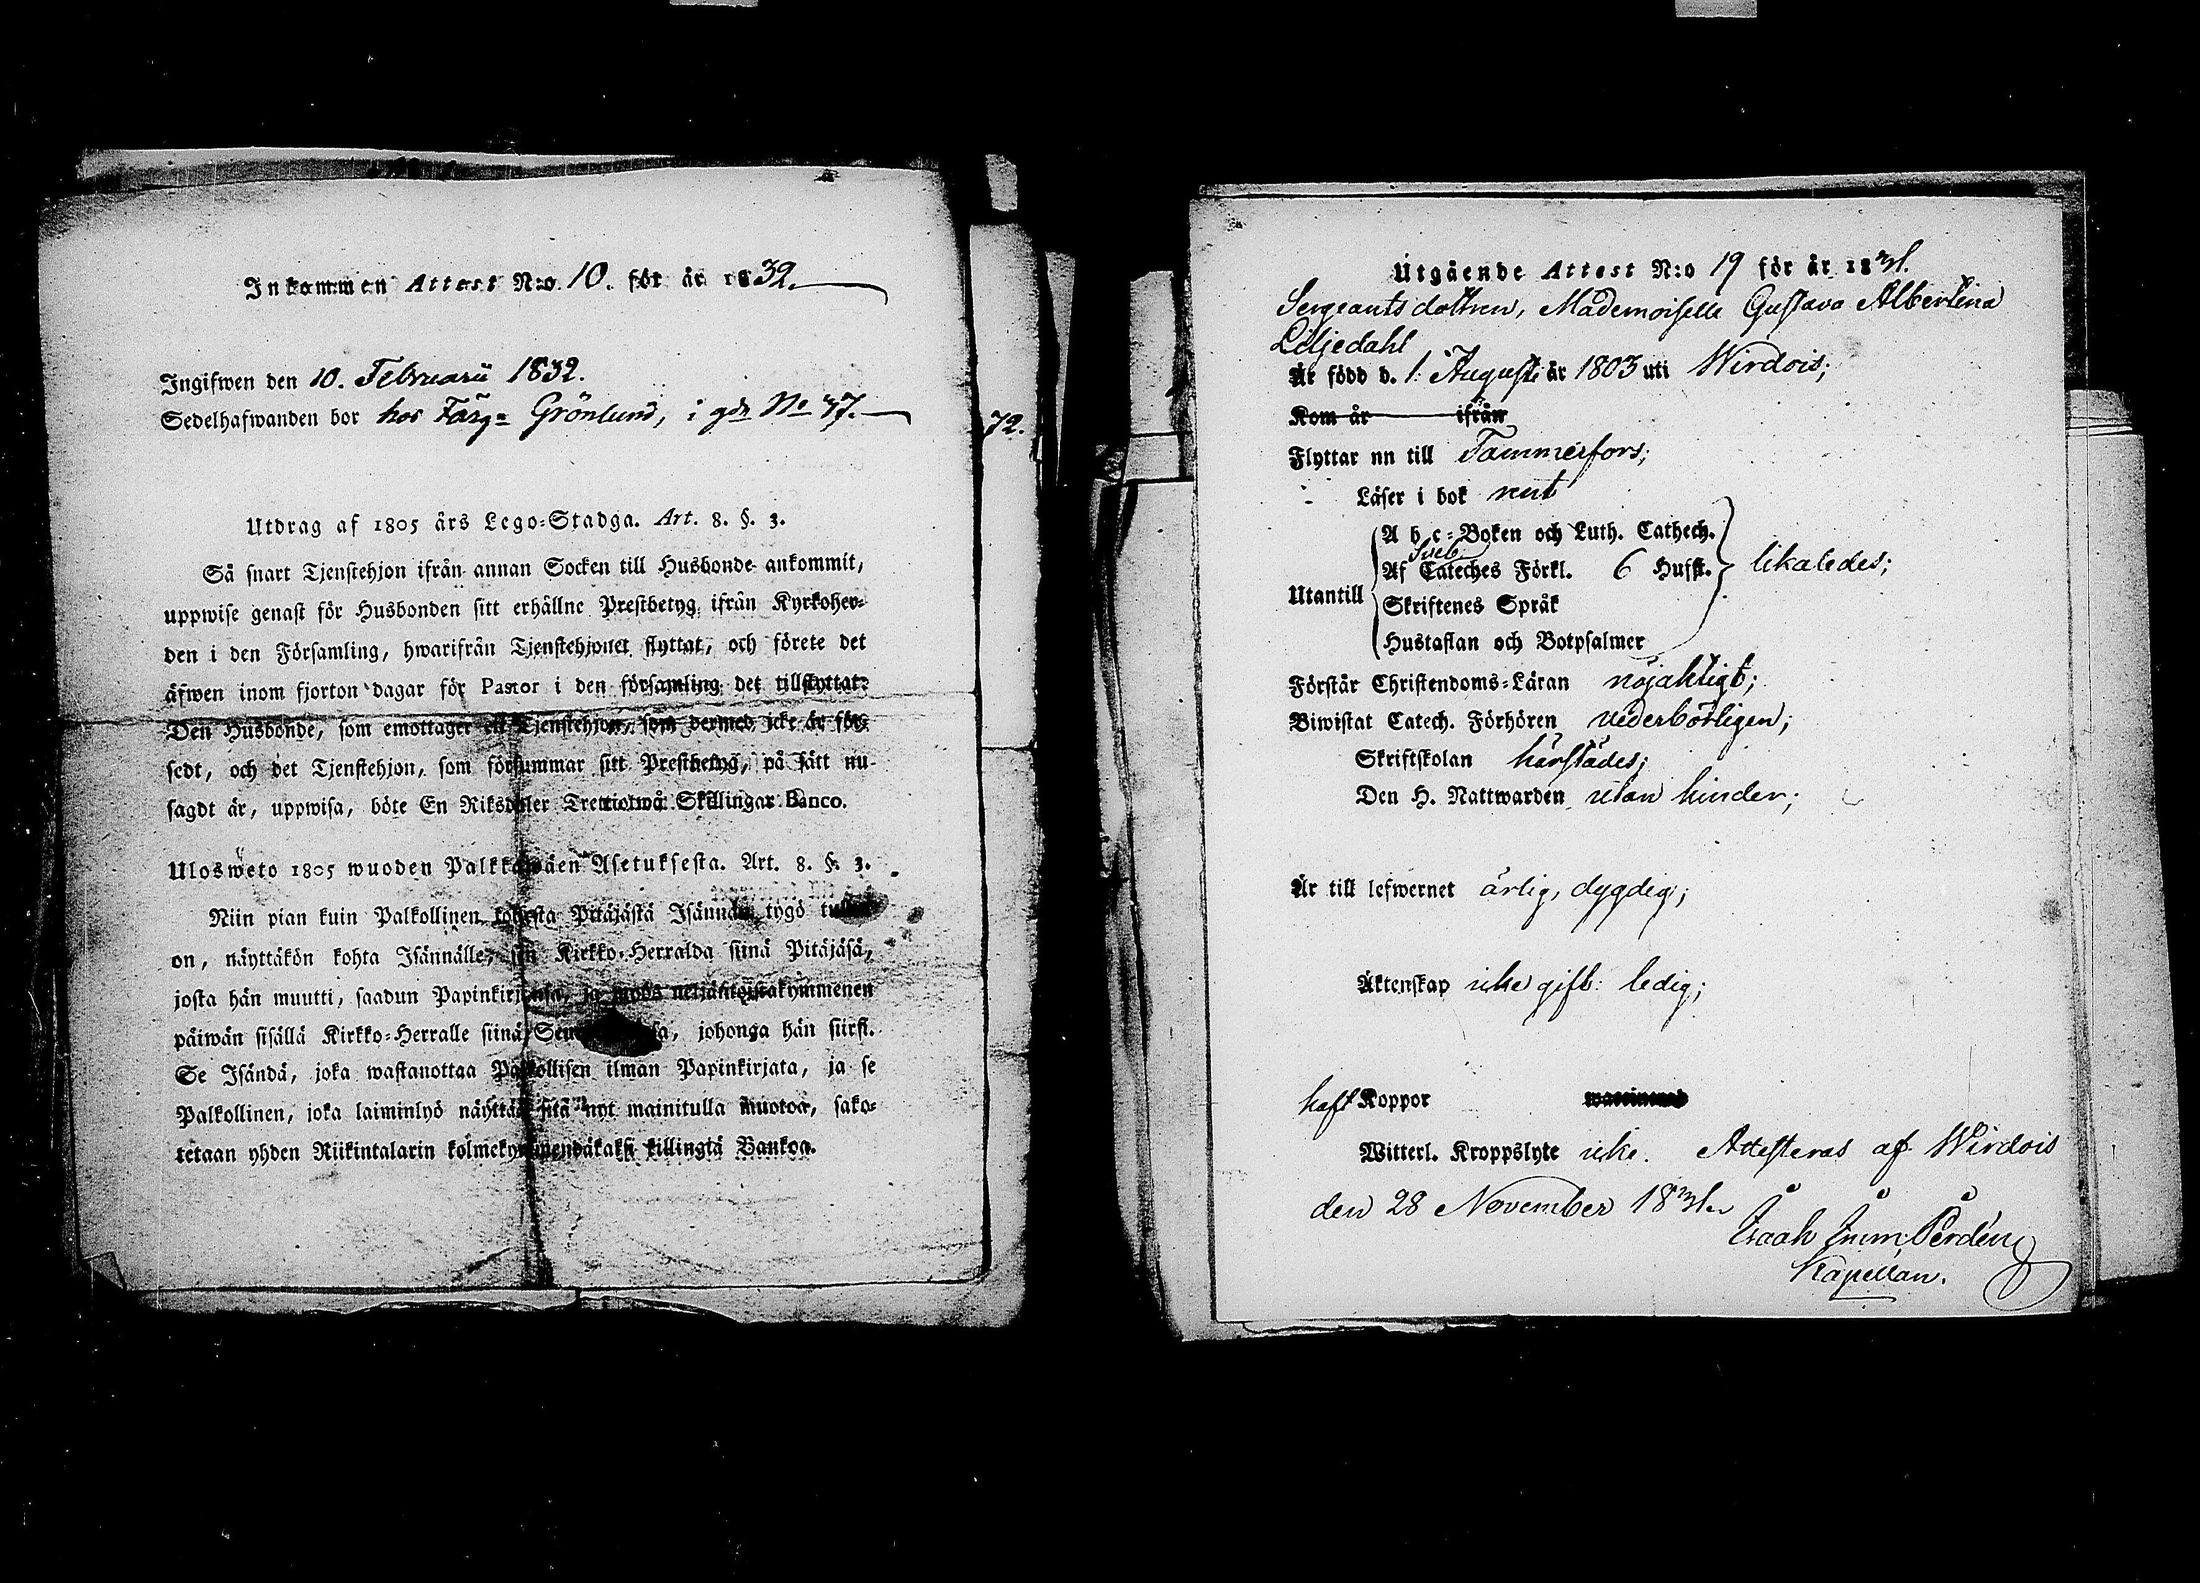 Inkommen Attest N:o 10. för år 1832.
Ingifwen den 10. Februarii 1832.
Sedelhafwanden bor hos Färg= Grönlund, i gdn No 37.
72.
Utdrag af 1805 års Lego=Stadga. Art. 8. §. 3.
Så snart Tjenstehjon ifrån annan Socken till Husbonde ankommit,
uppwise genast för Husbonden sitt erhållne Prestbetyg ifrån Kyrkoher=
den i den Församling, hwarifrån Tjenstehjonet flyttat, och förete det
äfwen inom fjorton dagar för Pastor i den församling det tillflyttat.
Den Husbonde, som emottager ett Tjenstehjon, som dermed icke är för=
sedt, och det Tjenstehjon, som försummar sitt Prestbetyg, på sätt nu
sagdt är, uppwisa, böte En Riksdaler Trettiotwå Skillingar Banco.
Ulosweto 1805 wuoden Palkkawäen Asetuksesta. Art. 8. §. 3.
Niin pian kuin Palkollinen toisesta Pitäjästä Isännän tygö tullut
on, näyttäkön kohta Isännälle, sen Kirkko=Herralda siinä Pitäjäsä,
josta hän muutti, saadun Papinkirjansa, ja myös neljäntoistakymmenen
päiwän sisällä Kirkko=Herralle siinä Seurakunnasa, johonga hän siirsi.
Se Isändä, joka wastanottaa Palkollisen ilman Papinkirjata, ja se
Palkollinen, joka laiminlyö näyttää sitä nyt mainitulla muotoa, sako=
tetaan yhden Riikintalarin kolmekymmendäkaksi killingiä Bankoa.
Utgående Attest N:o 19 för år 1831.
Sergeantsdottren, Mademoiselle Gustava Albertina
Liljedahl
Är född d. 1. Augusti år 1803 uti Wirdois;
Kom år ifrån
Flyttar nu till Tammerfors;
Läser i bok rent
A b c=Boken och Luth. Cathech.
Sveb.
Af Cateches Förkl. 6 Hufst. likaledes;
Utantill
Skriftenes Språk
Hustaflan och Botpsalmer
Förstår Christendoms=Läran nöjaktigt;
Biwistat Catech. Förhören vederbörligen;
Skriftskolan härstädes;
Den H. Nattwarden utan hinder;
Är till lefwernet ärlig, dygdig;
Äktenskap icke gift: ledig;
haft Koppor
Witterl. Kroppslyte icke. Attesteras af Wirdois
den 28 November 1831.
Isaak Imm: Perdén
Kapellan.